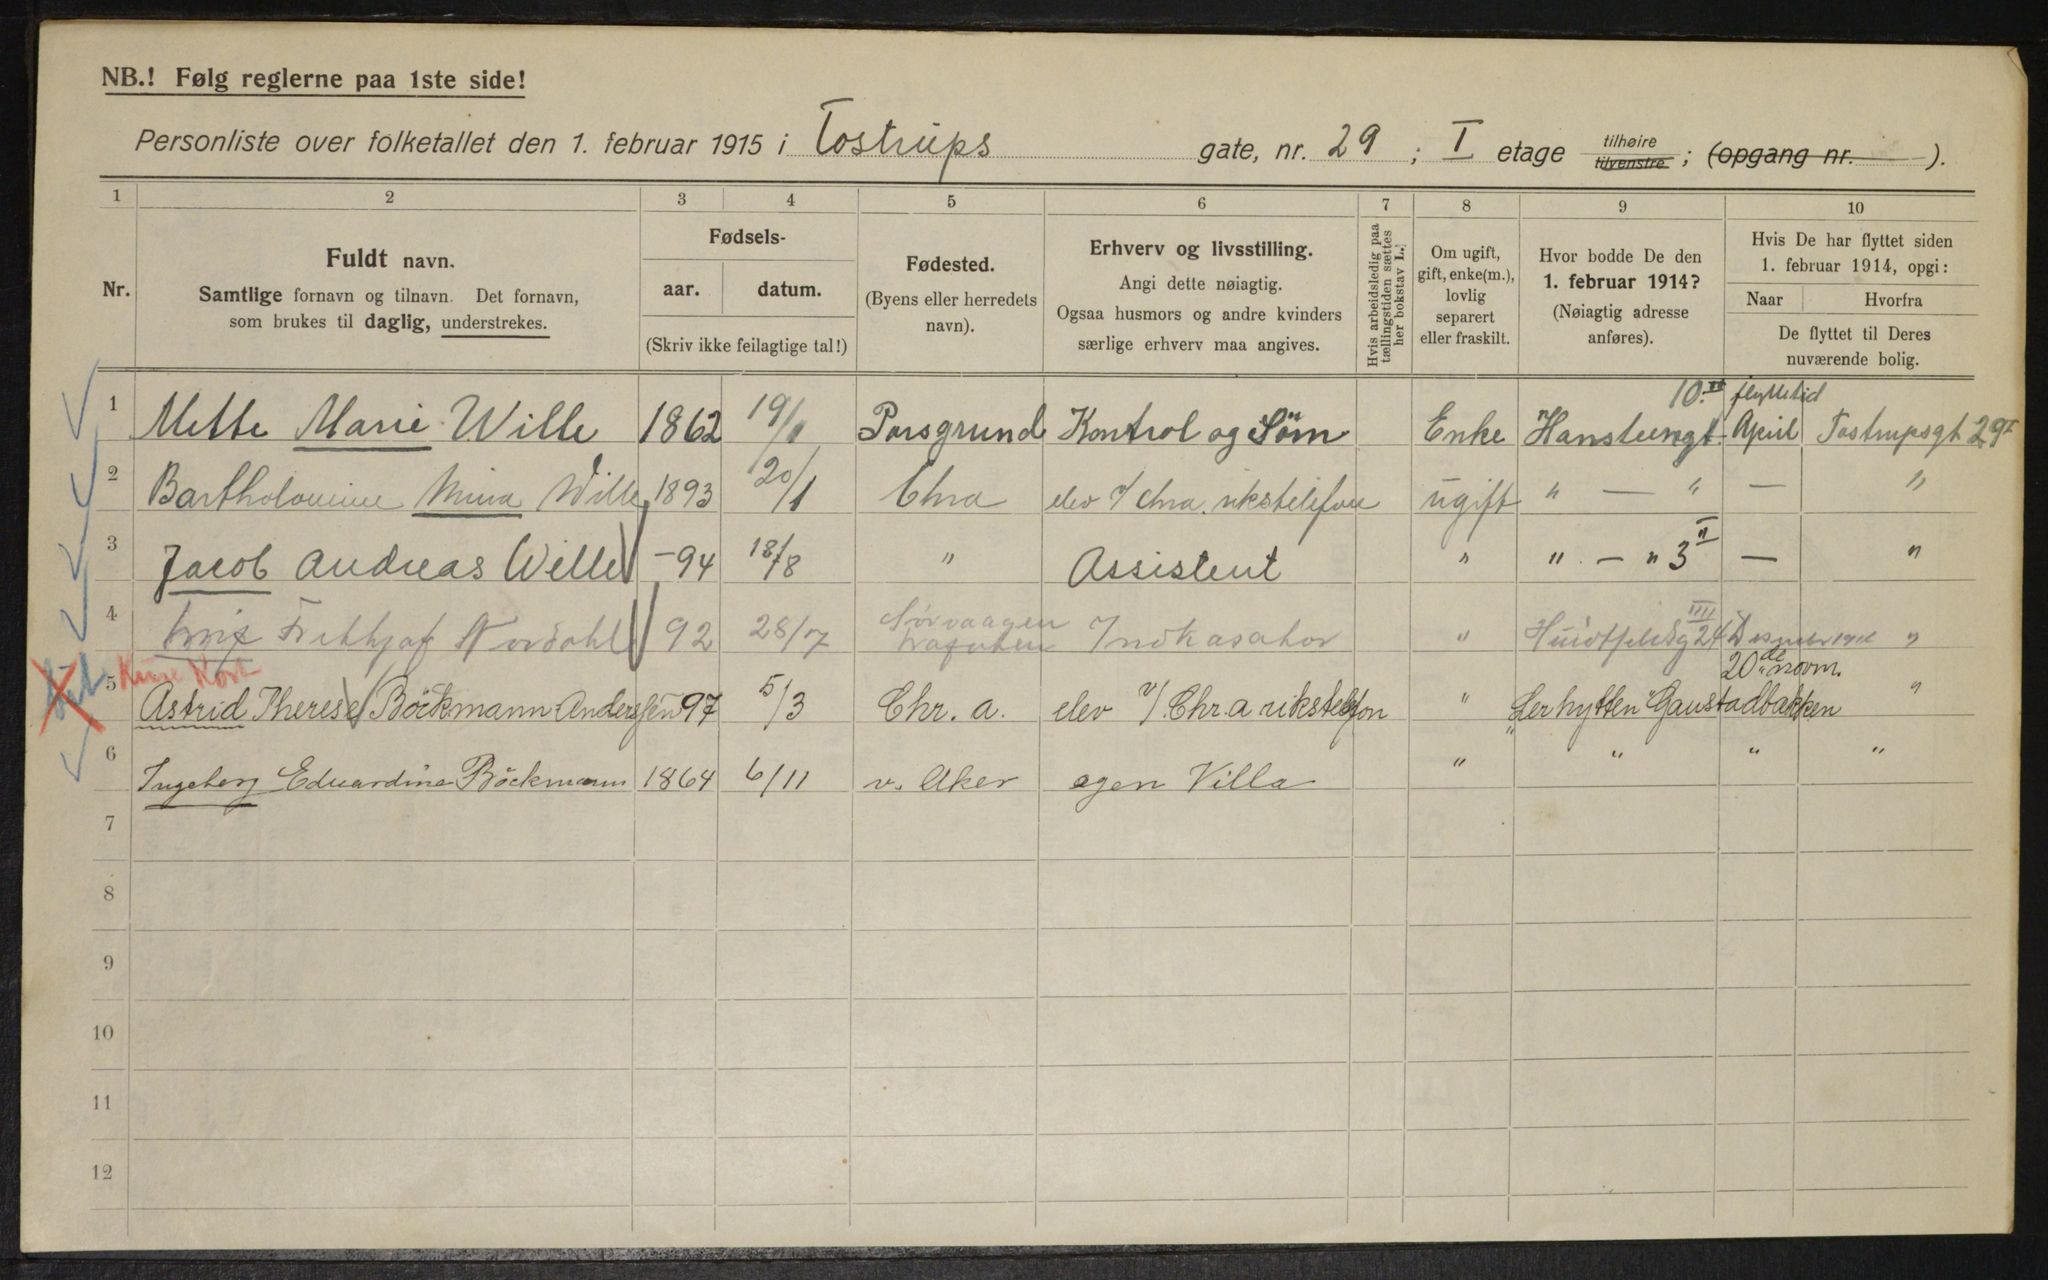 NB.! Følg reglerne paa 1ste side!
Personliste over folketallet den 1. februar 1915 i Tostrups gate, nr. 29 ; I etage tilhøire tilvenstre ; (opgang nr. ).
1 2 3 4 5 6 7 8 9 10
Nr.
Fuldt navn.
Samtlige fornavn og tilnavn. Det fornavn,
som brukes til daglig, understrekes.
Fødsels-
aar. datum.
(Skriv ikke feilagtige tal!)
Fødested.
(Byens eller herredets
navn).
Erhverv og livsstilling.
Angi dette nøiagtig.
Ogsaa husmors og andre kvinders
særlige erhverv maa angives.
Hvis arbeidsledig paa
tællingstiden sættes
her bokstav L.
Om ugift,
gift, enke(m.),
lovlig
separert
eller fraskilt.
Hvor bodde De den
1. februar 1914?
(Nøiagtig adresse
anføres).
Hvis De har flyttet siden
1. februar 1914, opgi:
Naar Hvorfra
De flyttet til Deres
nuværende bolig.
10. II flyttetid
1 Mette Marie Wille 1862 19/1 Porsgrund Kontrol og Söm Enke April Tostrupsgt 29 I
2 Bartholomine Mina Wille 1893 20/1 Chra elev v/ Chra. rikstelefon ugift " — " — "
3 Jacob Andreas Wille -94 18/8 " Assistent " " — " 3 II — "
4 Frithjof Nordahl 92 28/7 Sørvaagen Indkasator " Huidtfeldsg 24 IIII "
20de novm.
5 Astrid Therese Böckmann-Anderssen 97 5/3 Chr. a. elev v/ Chr. a rikstelefon " Gaustadbakken "
6 Ingeborg Eduardine Böckmann 1864 6/11 v. Aker egen Villa " " " "
7
8
9
10
11
12